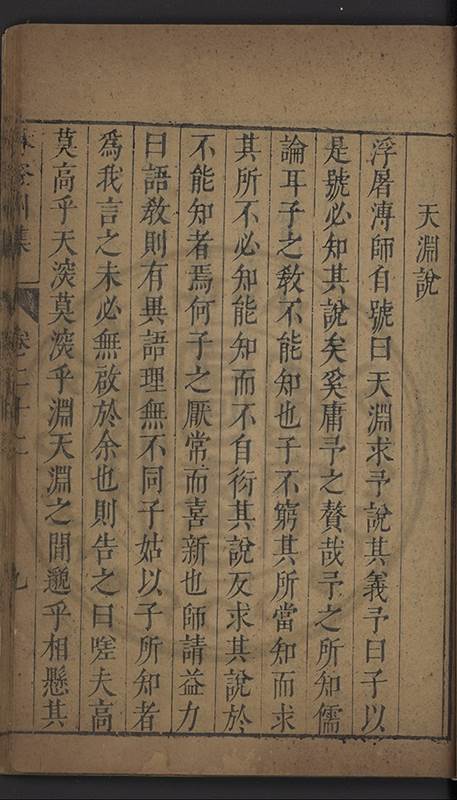 天淵說
浮屠溥師自號曰天淵求予說其義予曰子以
是號必知其說矣奚庸予之贅哉予之所知儒
論耳子之敎不能知也子不窮其所當知而求
其所不必知能知而不自衒其說反求其說於
不能知者焉何子之厭常而喜新也師請益力
曰語敎則有異語理無不同子姑以子所知者
爲我言之未必無啟於余也則告之曰嗟夫高
莫高乎天深莫深乎淵天淵之間邈乎相懸其
集 卷二十二
九